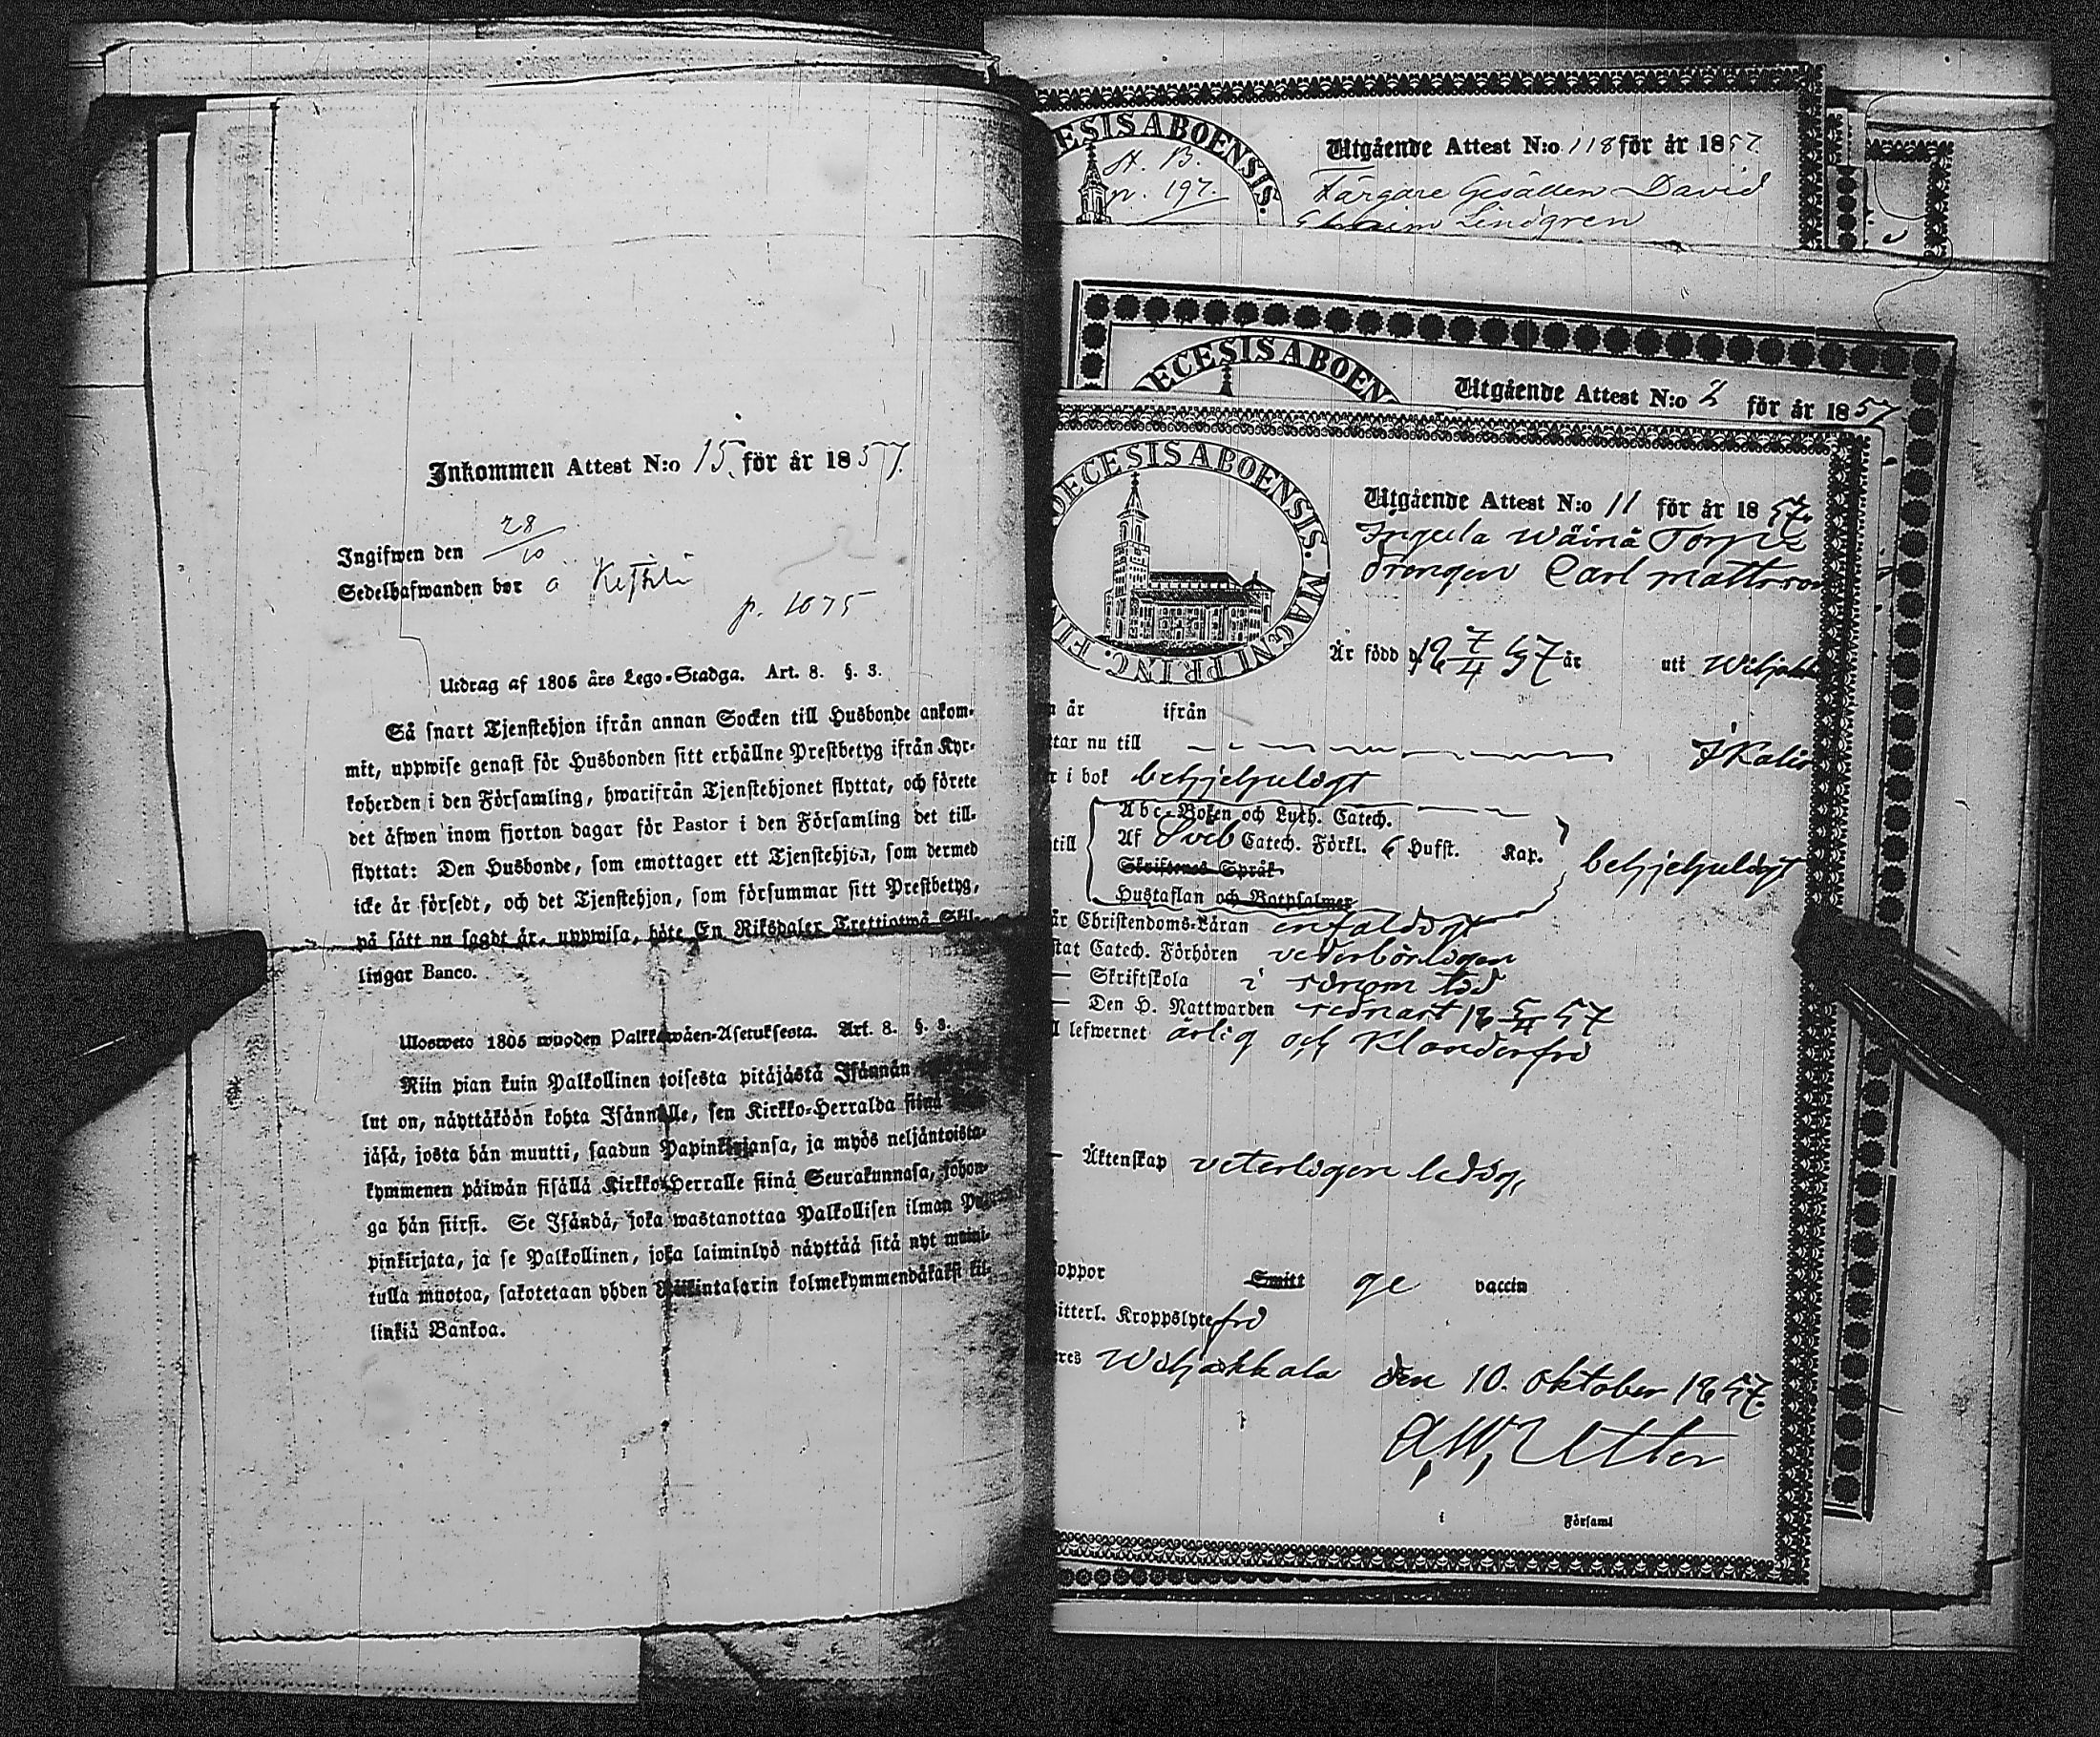 Inkommen Attest N:o 15. för år 1857.
Ingifwen den 28/10
Sedelhafwanden bor å
p. 1075
Utdrag af 1805 års Lego-Stadga. Art. 8. §. 3.
Så snart Tjenstehjon ifrån annan Socken till Husbonde ankom-
mit, uppwise genast för Husbonden sitt erhållne Prestbetyg ifrån Kyr-
koherden i den Församling, hwarifrån Tjenstehjonet flyttat, och förete
det äfwen inom fjorton dagar för Pastor i den Församling det till-
flyttat: Den Husbonde, som emottager ett Tjenstehjon, som dermed
icke är försedt, och det Tjenstehjon, som försummar sitt Prestbetyg,
på sätt nu sagdt är, uppwisa, böte En Riksdaler Trettiotwå Skil-
lingar Banco.
Ulosweto 1805 wuoden Palkkawäen-Asetuksesta. Art. 8. §. 3.
Niin pian kuin Palkollinen toisesta pitäjästä Isännän
lut on, näyttäköön kohta Isännälle, sen Kirkko-Herralda siinä
jäsä, josta hän muutti, saadun Papinkirjansa, ja myös neljäntoista-
kymmenen päiwän sisällä Kirkko-Herralle siinä Seurakunnasa, johon-
ga hän siirsi. Se Isändä, joka wastanottaa Palkollisen ilman Pa-
pinkirjata, ja se Palkollinen, joka laiminlyö näyttää sitä nyt maini-
tulla muotoa, sakotetaan yhden Riikintalarin kolmekymmendäkaksi kil-
linkiä Bankoa.
ESIS ABOENSIS.
p. 197.
Utgående Attest N:o 118 för år 1857.
Färgare Gesällen David
Lindgren
DECESIS ABOEN
Utgående Attest N:o 2 för år 1857
DECESIS ABOENSIS. MAGNI PRINC. FIN
Utgående Attest N:o 11 för år 1857.
Ingeela Wäinä Torp
Drengen Carl Mattsson
Är född 18 7/4 37 år uti Wiljakk
år ifrån
tar nu till Ikalis
r i bok behjelpeligt
Abc-Boken och Luth. Catech.
till Af Sveb Catech. Förkl. 6 Hufst. Kap. behjelpeligt
Skriftenes Språk
Hustaflan och Botpsalmer
år Christendoms-Läran enfaldigt
stat Catech. Förhören vederbörligen
Skriftskola i sinom tid
Den H. Nattwarden senast 18 5/4 57
l lefwernet ärlig och klanderfri
Äktenskap veterligen ledig,
oppor Smitt ge vaccin
itterl. Kroppslyte fri
res Wiljakkala den 10. Oktober 1857.
A. W. Utter
i Församl